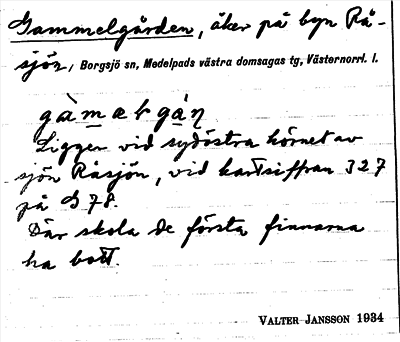 Gammelgården, åker på byn Rå-
sjön, Borgsjö sn, Medelpads västra domsagas tg, Västernorrl. l.
gàmalgán
Ligger vid sydöstra hörnet av
sjön Råsjön, vid kartsiffran 327
på G 78.
Där skola de första finnarna
ha bott.
VALTER JANSSON 1934